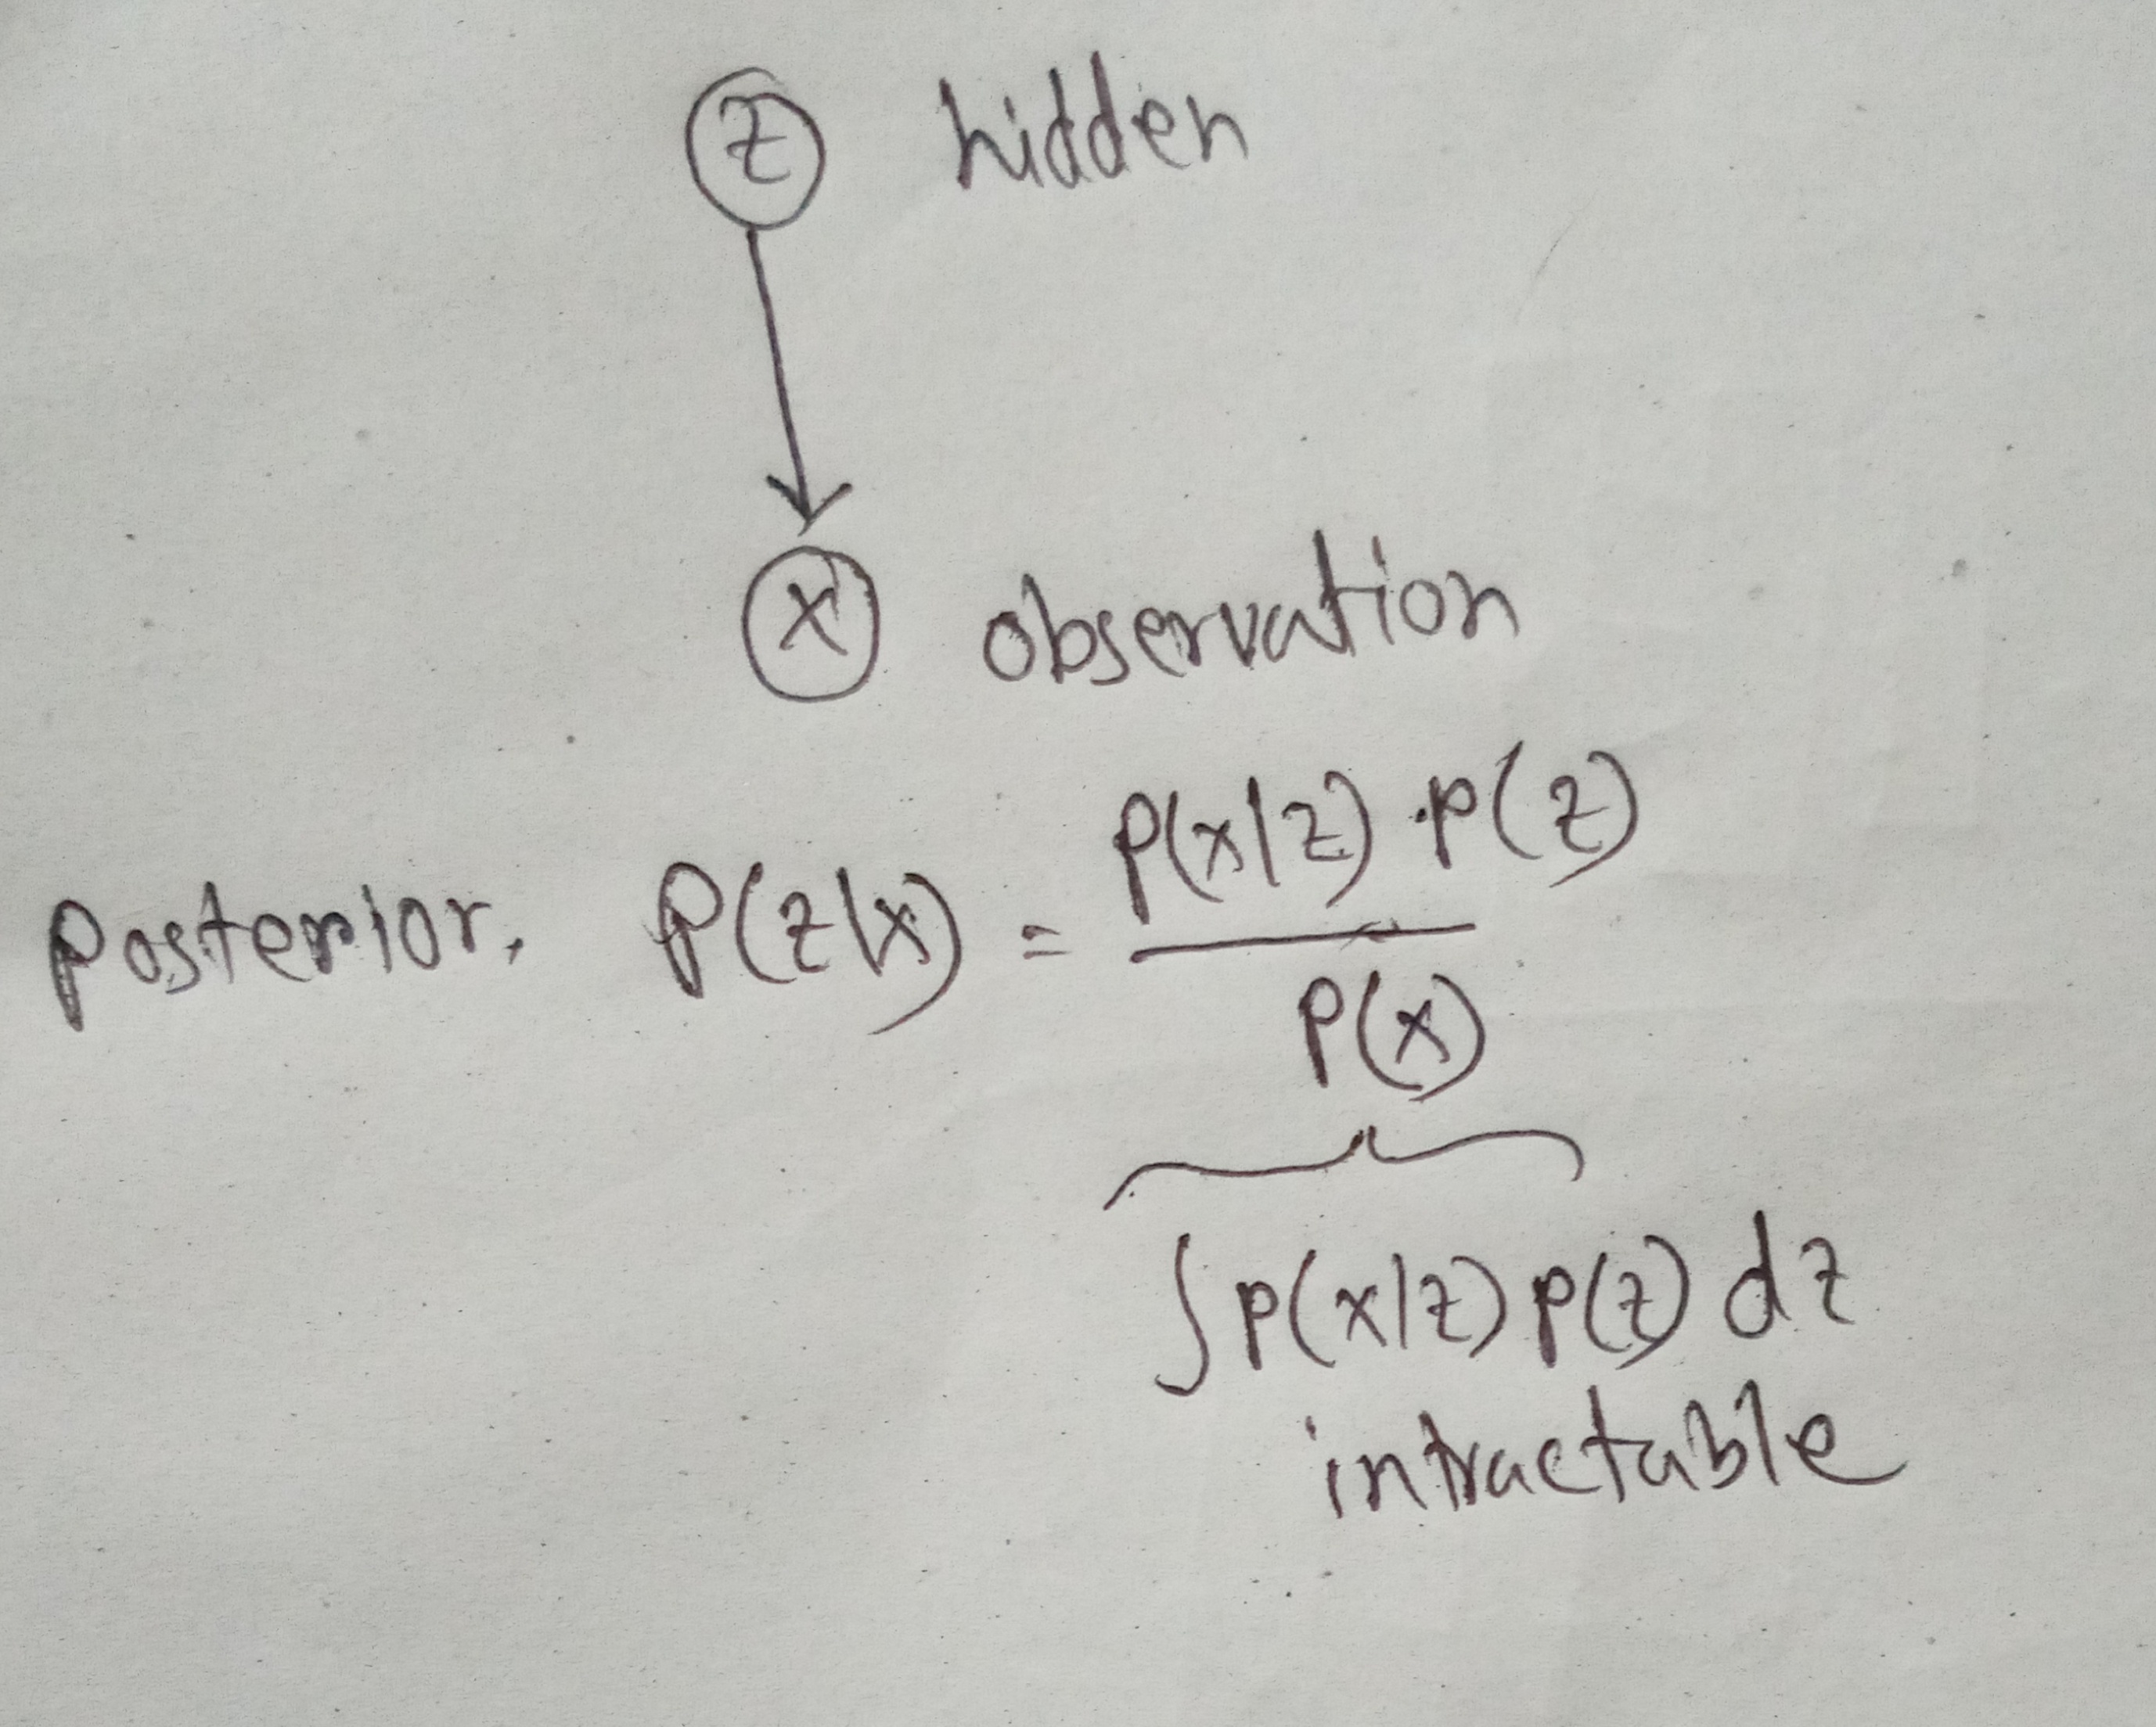 z hidden
x observation
Posterior, P(z|x) = P(x|z) · P(z) / P(x)
∫ p(x|z) p(z) dz
intractable